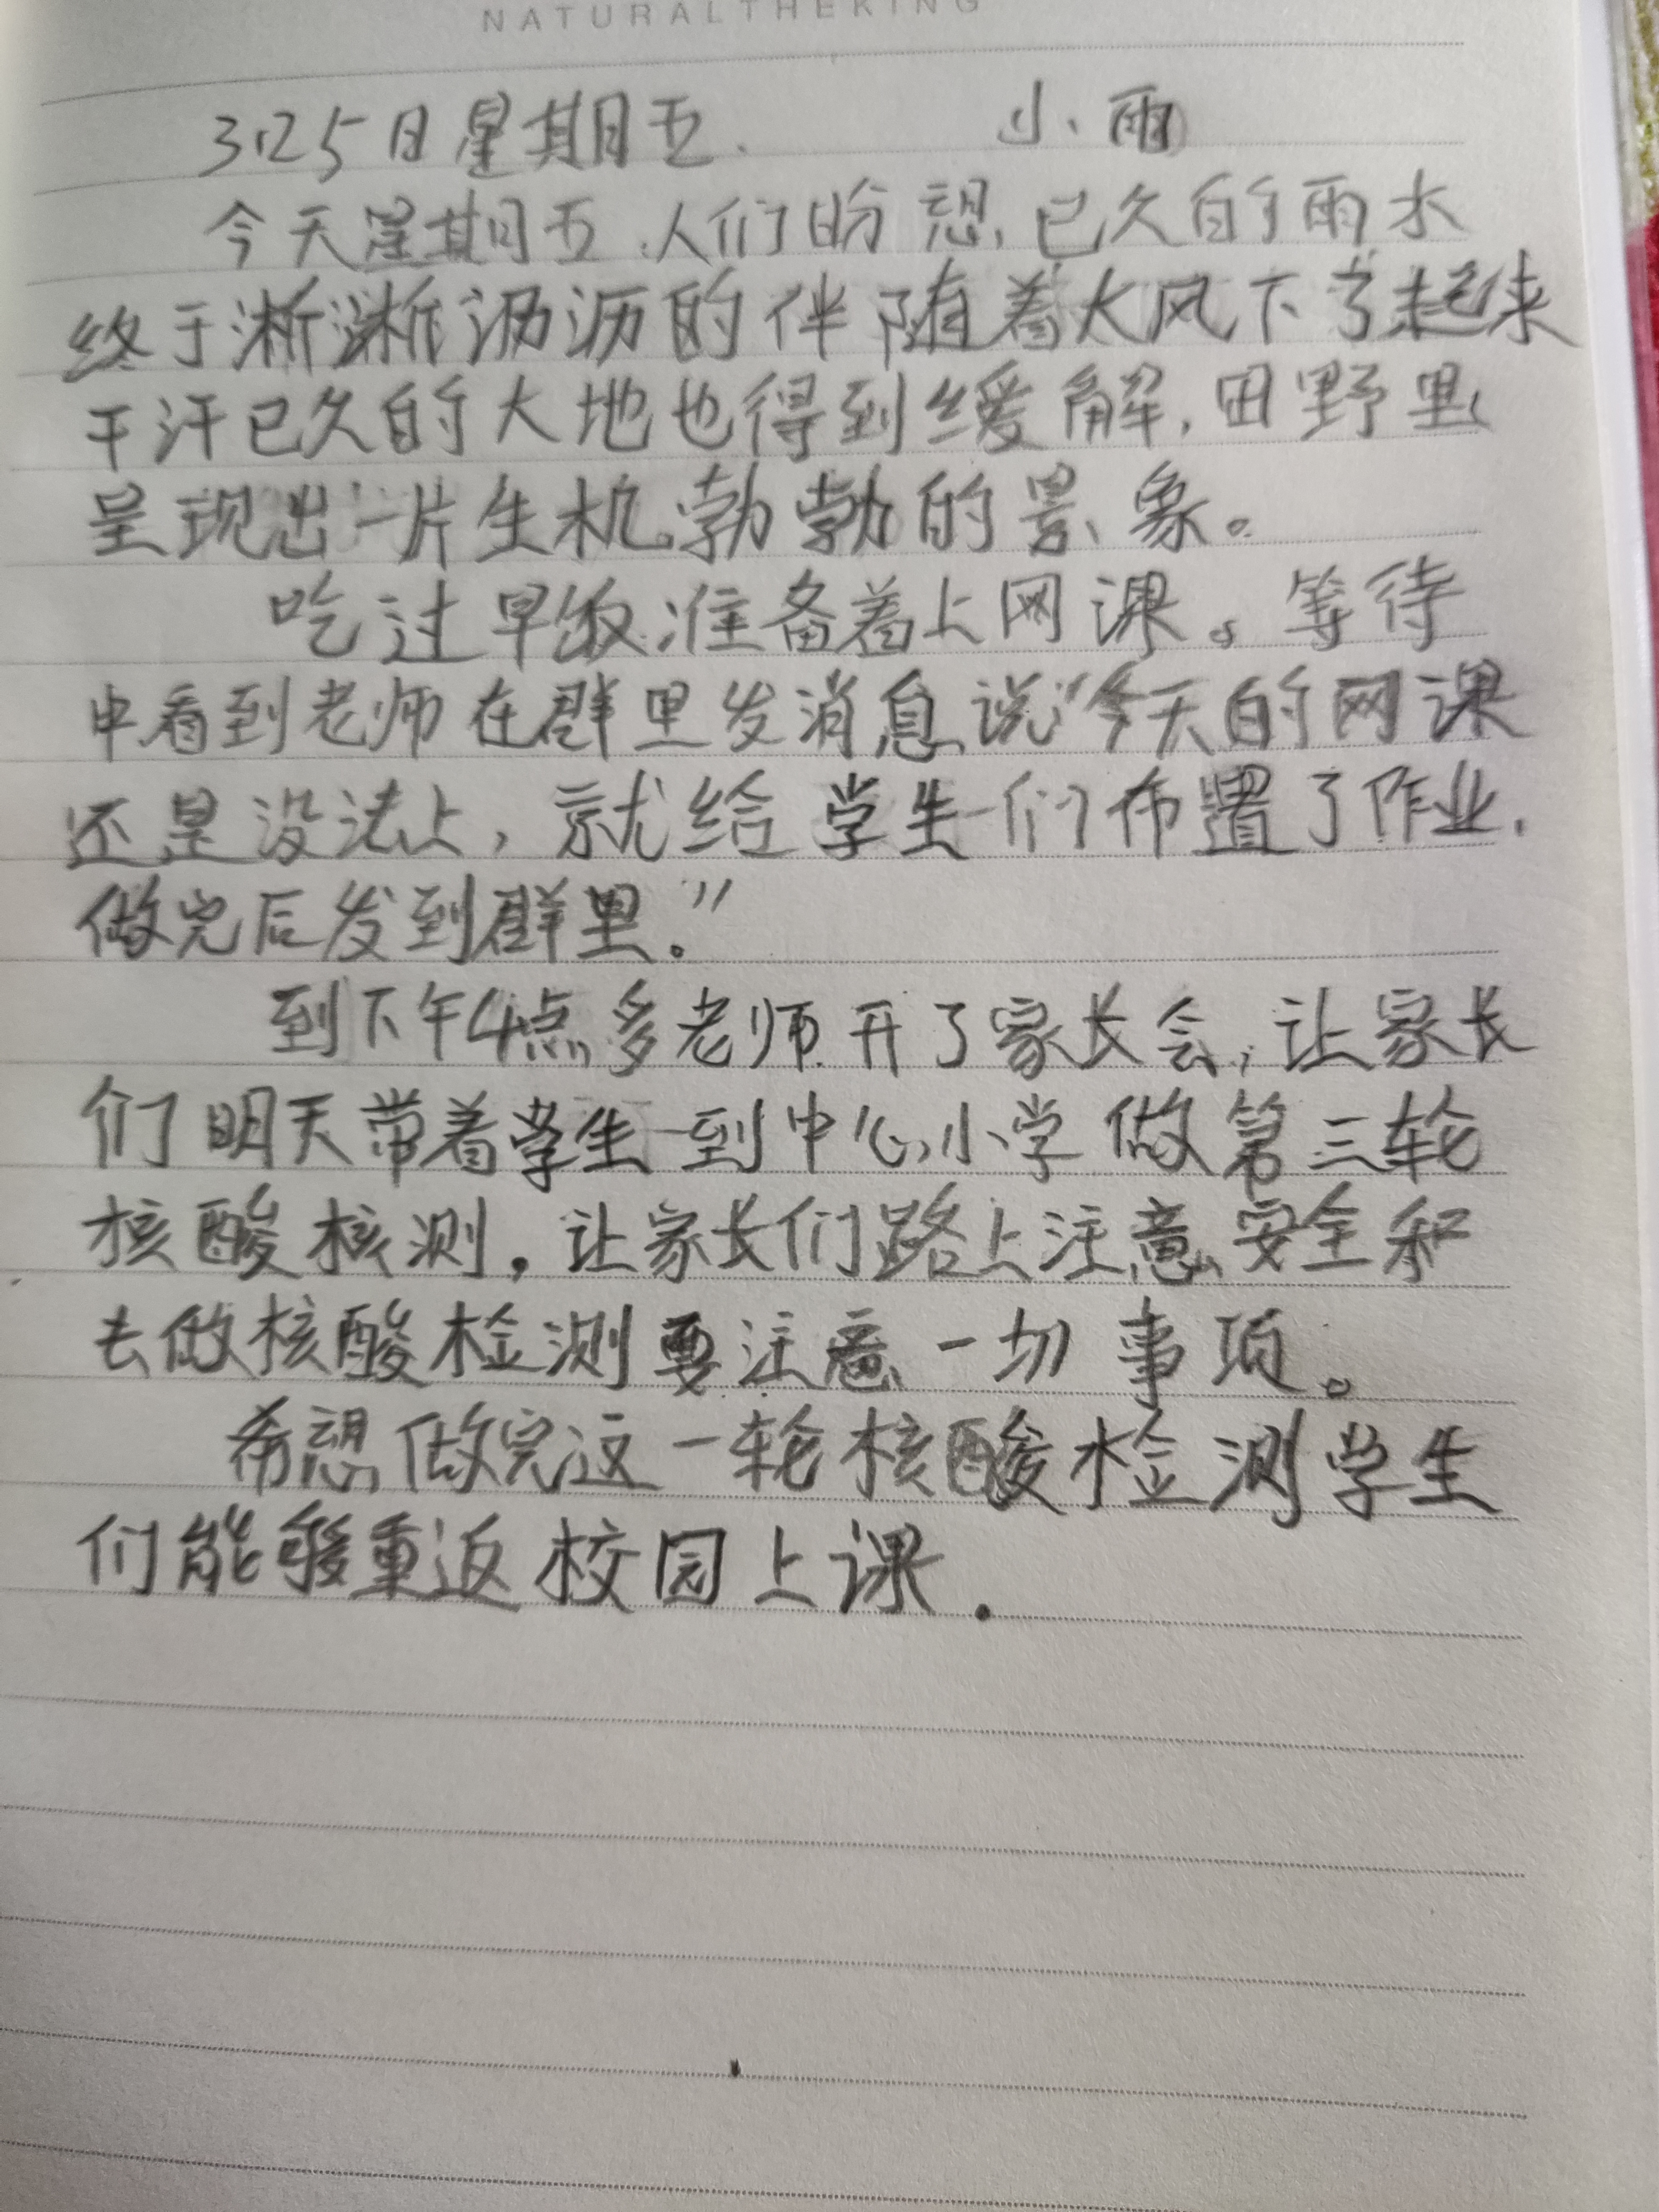 NATURALTHEKING
3月25日星期五. 小雨
今天星期五,人们盼想已久的雨水
终于淅淅沥沥的伴随着大风下了起来
干汗已久的大地也得到缓解,田野里
呈现出一片生机勃勃的景象。
吃过早饭准备着上网课。等待
中看到老师在群里发消息说“今天的网课
还是没法上,就给学生们布置了作业,
做完后发到群里。”
到下午4点多老师开了家长会,让家长
们明天带着学生到中心小学做第三轮
核酸核测,让家长们路上注意安全和
去做核酸检测要注意一切事项。
希想做完这一轮核酸检测学生
们能够重返校园上课.